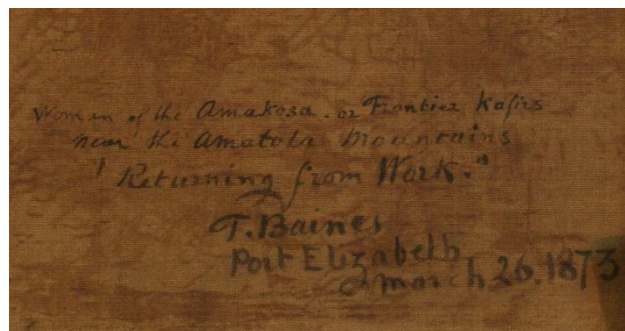 Women of the Amakosa. or Frontier Kafirs
near the Amatola Mountains
"Returning from Work."
T. Baines
Port Elizabeth
March 26. 1873